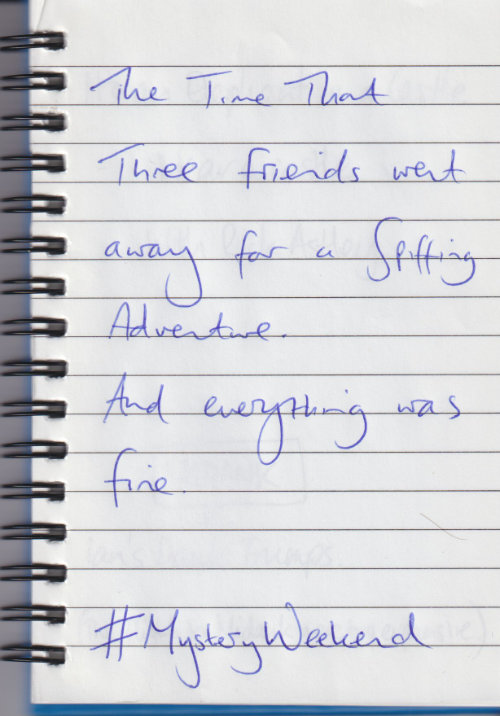 The Time That
Three friends went
away for a Spiffing
Adventure.
And everything was
fine.
#MysteryWeekend